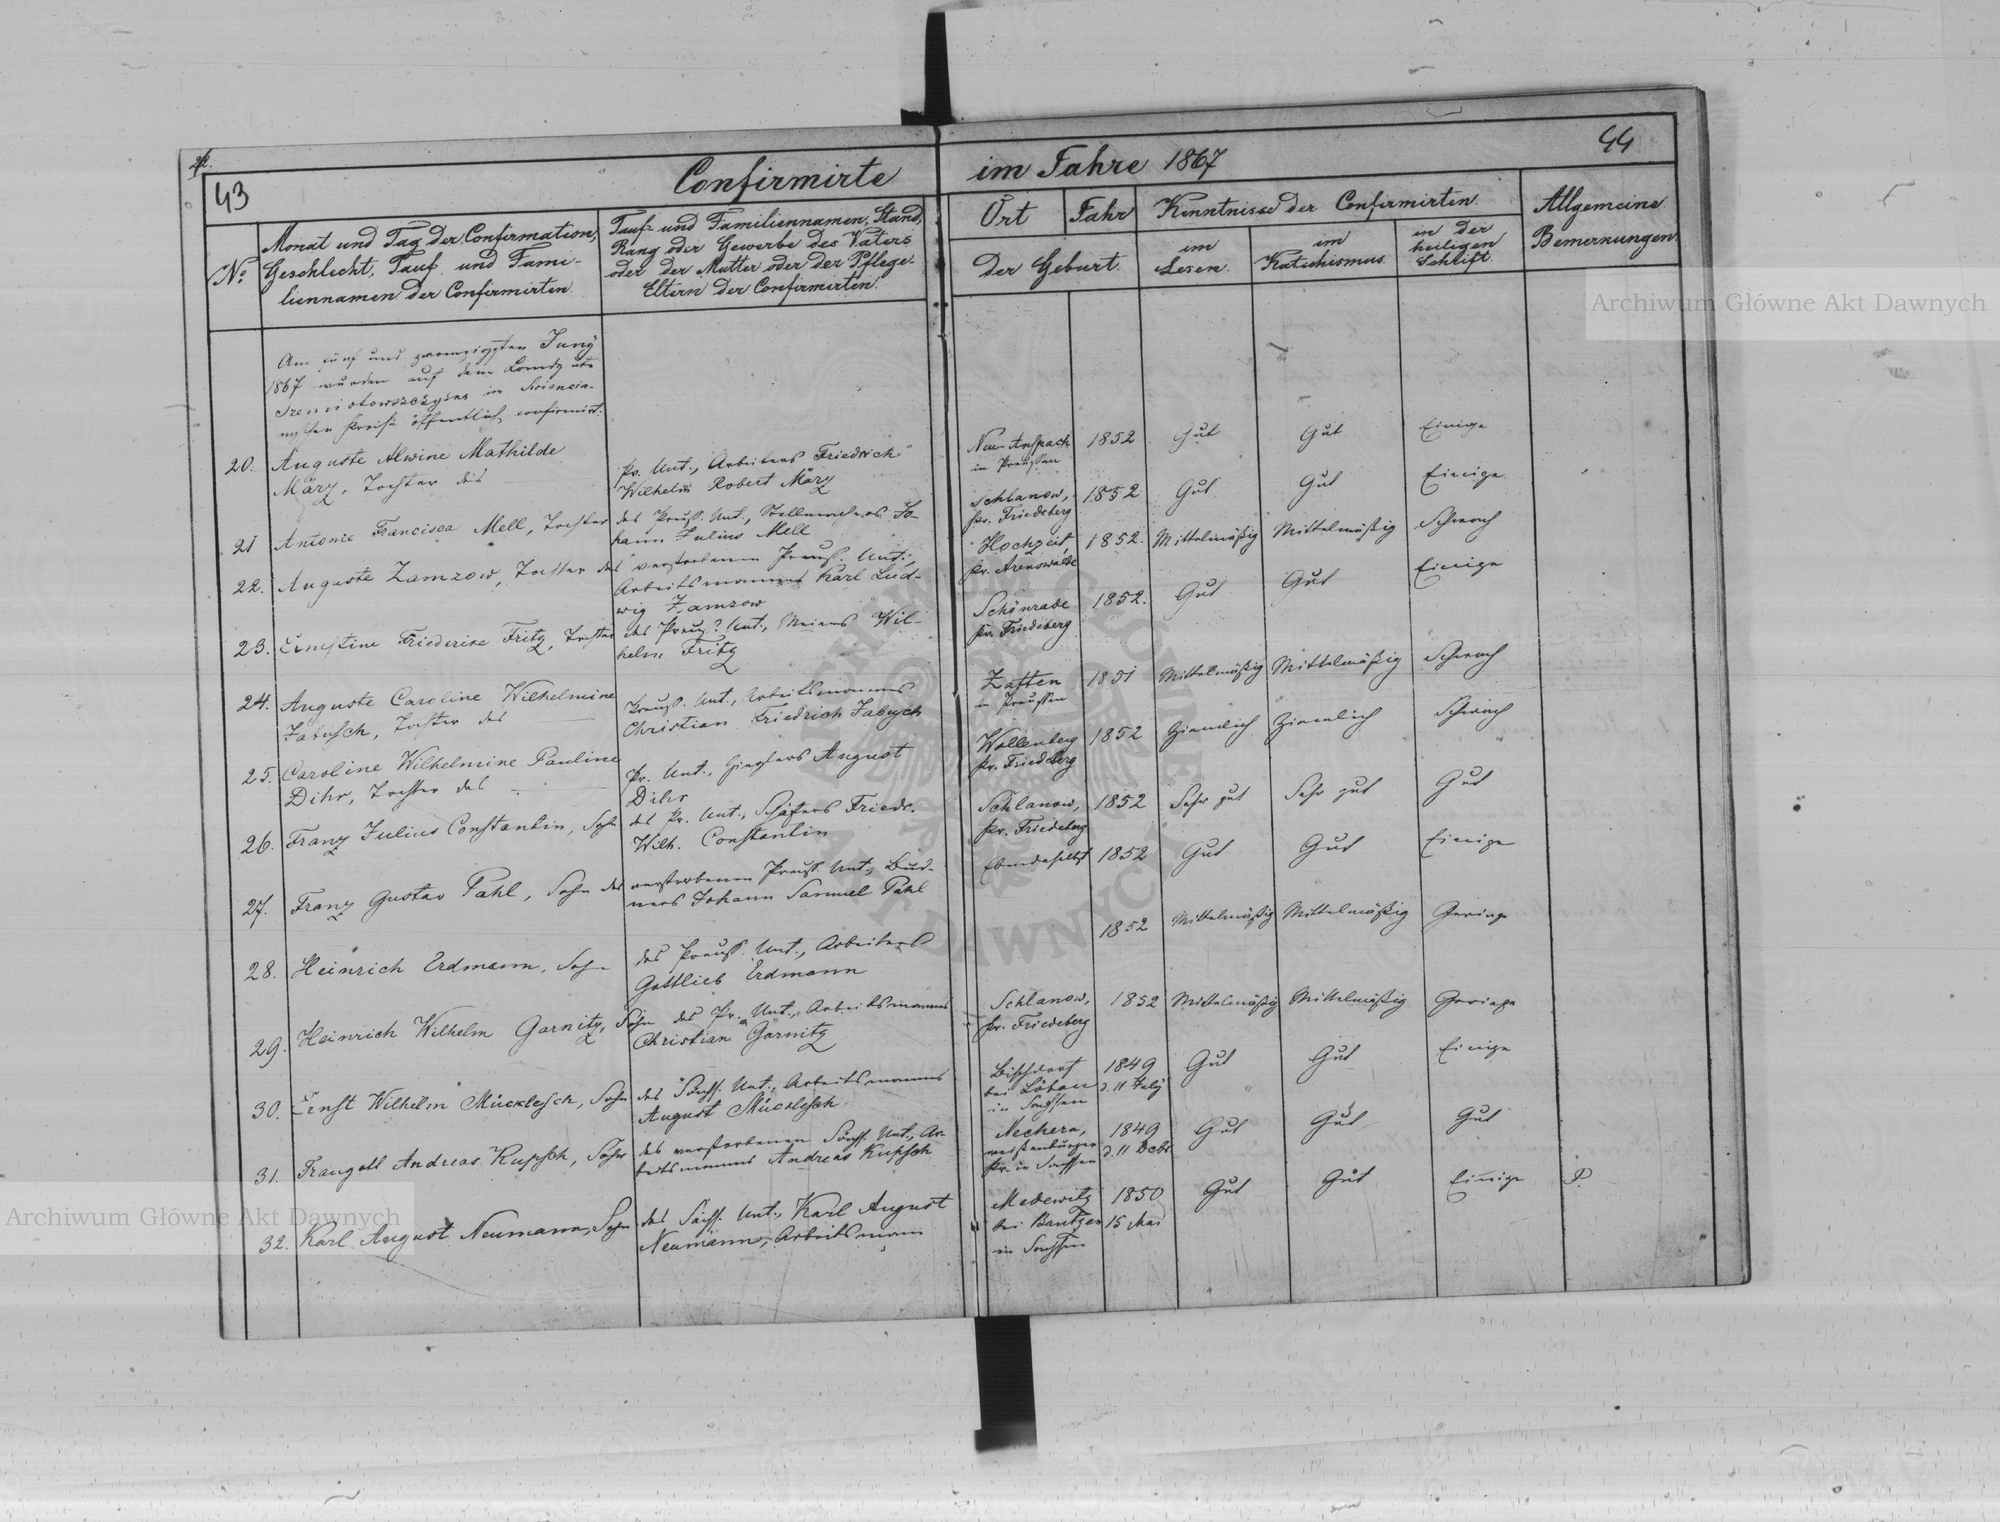 22.
43
Confirmirte
im Jahre 1867
44
No
Monat und Tag der Confirmation,
Geschlecht, Tauf und Fami-
liennamen der Confirmirten.
Tauf- und Familiennamen, Stand,
Rang oder Gewerbe des Vaters
oder der Mutter oder der Pflege-
Eltern der Confirmirten.
Ort
Jahr
der Geburt.
Kenntnisse der Confirmirten.
im
Lesen.
im
Katechismus.
in der
heiligen
Schrift.
Allgemeine
Bemerkungen.
Am fünf und zwanzigsten Juny
1867 wurden auf dem
in
Kreise öffentlich confirmirt:
20. Auguste Alwine Mathilde
März, Tochter des
Pr. Unt., Arbeiters Friedrich
Wilhelm Robert März
Neu-Anspach
in Preussen
1852 Gut Gut Einige
21 Antonie Francisca Mell, Tochter
des Preuß. Unt., Stellmachers Jo-
hann Julius Mell
Schlanow,
Kr. Friedeberg
1852 Gut Gut Einige
22. Auguste Zamzow, Tochter des
verstorbenen Preuß. Unt.,
Arbeitsmannes Karl Lud-
wig Zamzow
Hochzeit,
Kr. Arenswalde
1852. Mittelmäßig Mittelmäßig Schwach
23. Ernestine Friederike Fritz, Tochter
des Preuß. Unt., Wil-
helm Fritz
Schönrade
Kr. Friedeberg
1852. Gut Gut Einige
24. Auguste Caroline Wilhelmine
Jabusch, Tochter des
Preuß. Unt., Arbeitsmannes
Christian Friedrich Jabusch
Zatten
in Preussen
1851 Mittelmäßig Mittelmäßig Schwach
25. Caroline Wilhelmine Pauline
Dihr, Tochter des
Pr. Unt., Zieglers August
Dihr
Wollenberg
Kr. Friedeberg
1852 Ziemlich Ziemlich Schwach
26. Franz Julius Constantin, Sohn
des Pr. Unt., Schäfers Friedr.
Wilh. Constantin
Schlanow,
Kr. Friedeberg
1852 Sehr gut Sehr gut Gut
27. Franz Gustav Pahl, Sohn des
verstorbenen Preuß. Unt., Büd-
ners Johann Samuel Pahl
Ebendaselbst 1852 Gut Gut Einige
28. Heinrich Erdmann, Sohn
des Preuß. Unt., Arbeiters
Gottlieb Erdmann
1852 Mittelmäßig Mittelmäßig Geringe
29. Heinrich Wilhelm Garnitz, Sohn
des Pr. Unt., Arbeitsmannes
Christian Garnitz
Schlanow,
Kr. Friedeberg
1852 Mittelmäßig Mittelmäßig Geringe
30. Ernst Wilhelm Mücklesch, Sohn
des Sächs. Unt., Arbeitsmannes
August Mücklesch
Bischdorf
bei Löbau
in Sachsen
1849
d. 11 July
Gut Gut Einige
31. Traugott Andreas Kupsch, Sohn
des verstorbenen Sächs. Unt., Ar-
beitsmannes Andreas Kupsch
Nechern,
Kr. in Sachsen
1849
d. 11 Debr
Gut Gut Gut
32. Karl August Neumann, Sohn
des Sächs. Unt., Karl August
Neumann, Arbeitsmann
Medewitz
bei Bautzen
in Sachsen
1850
15 Mai
Gut Gut Einige P.
Archiwum Główne Akt Dawnych
Archiwum Główne Akt Dawnych